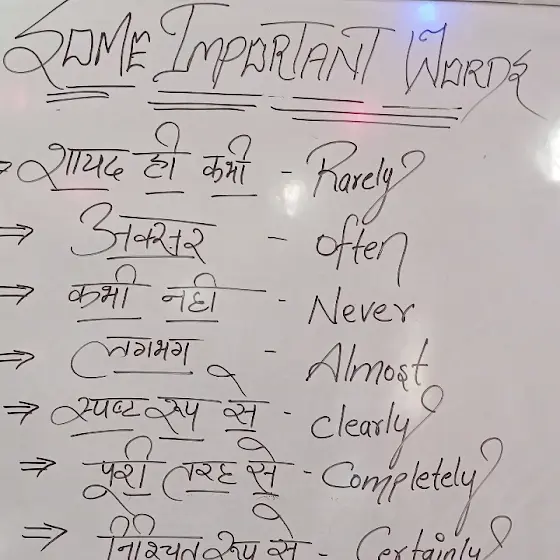 SOME IMPORTANT WORDS
→ शायद ही कभी - Rarely
⇒ अक्सर - often
⇒ कभी नही - Never
⇒ लगभग - Almost
⇒ स्पष्ट रूप से - clearly
⇒ पूरी तरह से - Completely
⇒ निश्चित रूप से - Certainly